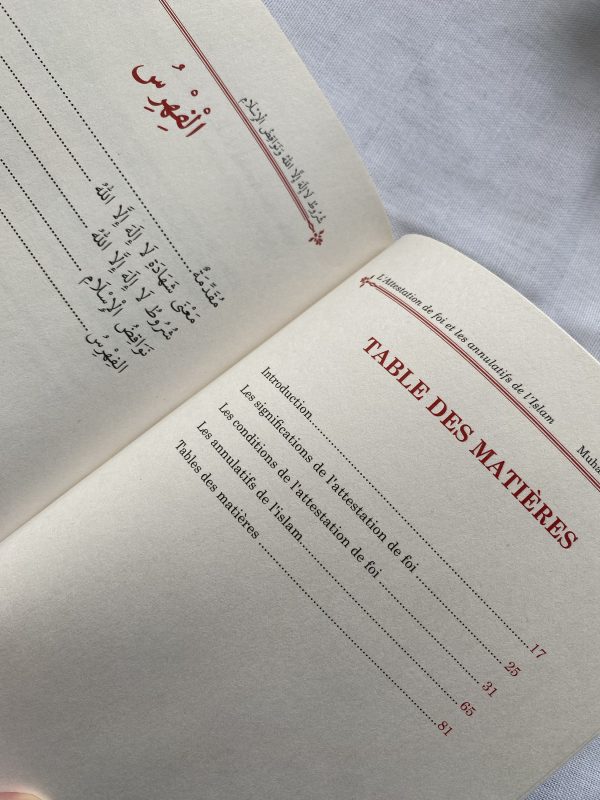 شُرُوطُ لَا إِلَهَ إِلَّا اللهُ وَنَوَاقِضُ الْإِسْلَامِ
الْفِهْرِسُ
مُقَدِّمَةٌ
مَعْنَى شَهَادَةِ لَا إِلَهَ إِلَّا اللهُ
شُرُوطُ لَا إِلَهَ إِلَّا اللهُ
نَوَاقِضُ الْإِسْلَامِ
الْفِهْرِسُ
L'Attestation de foi et les annulatifs de l'Islam
TABLE DES MATIÈRES
Introduction 17
Les significations de l'attestation de foi 25
Les conditions de l'attestation de foi 31
Les annulatifs de l'islam 65
Tables des matières 81